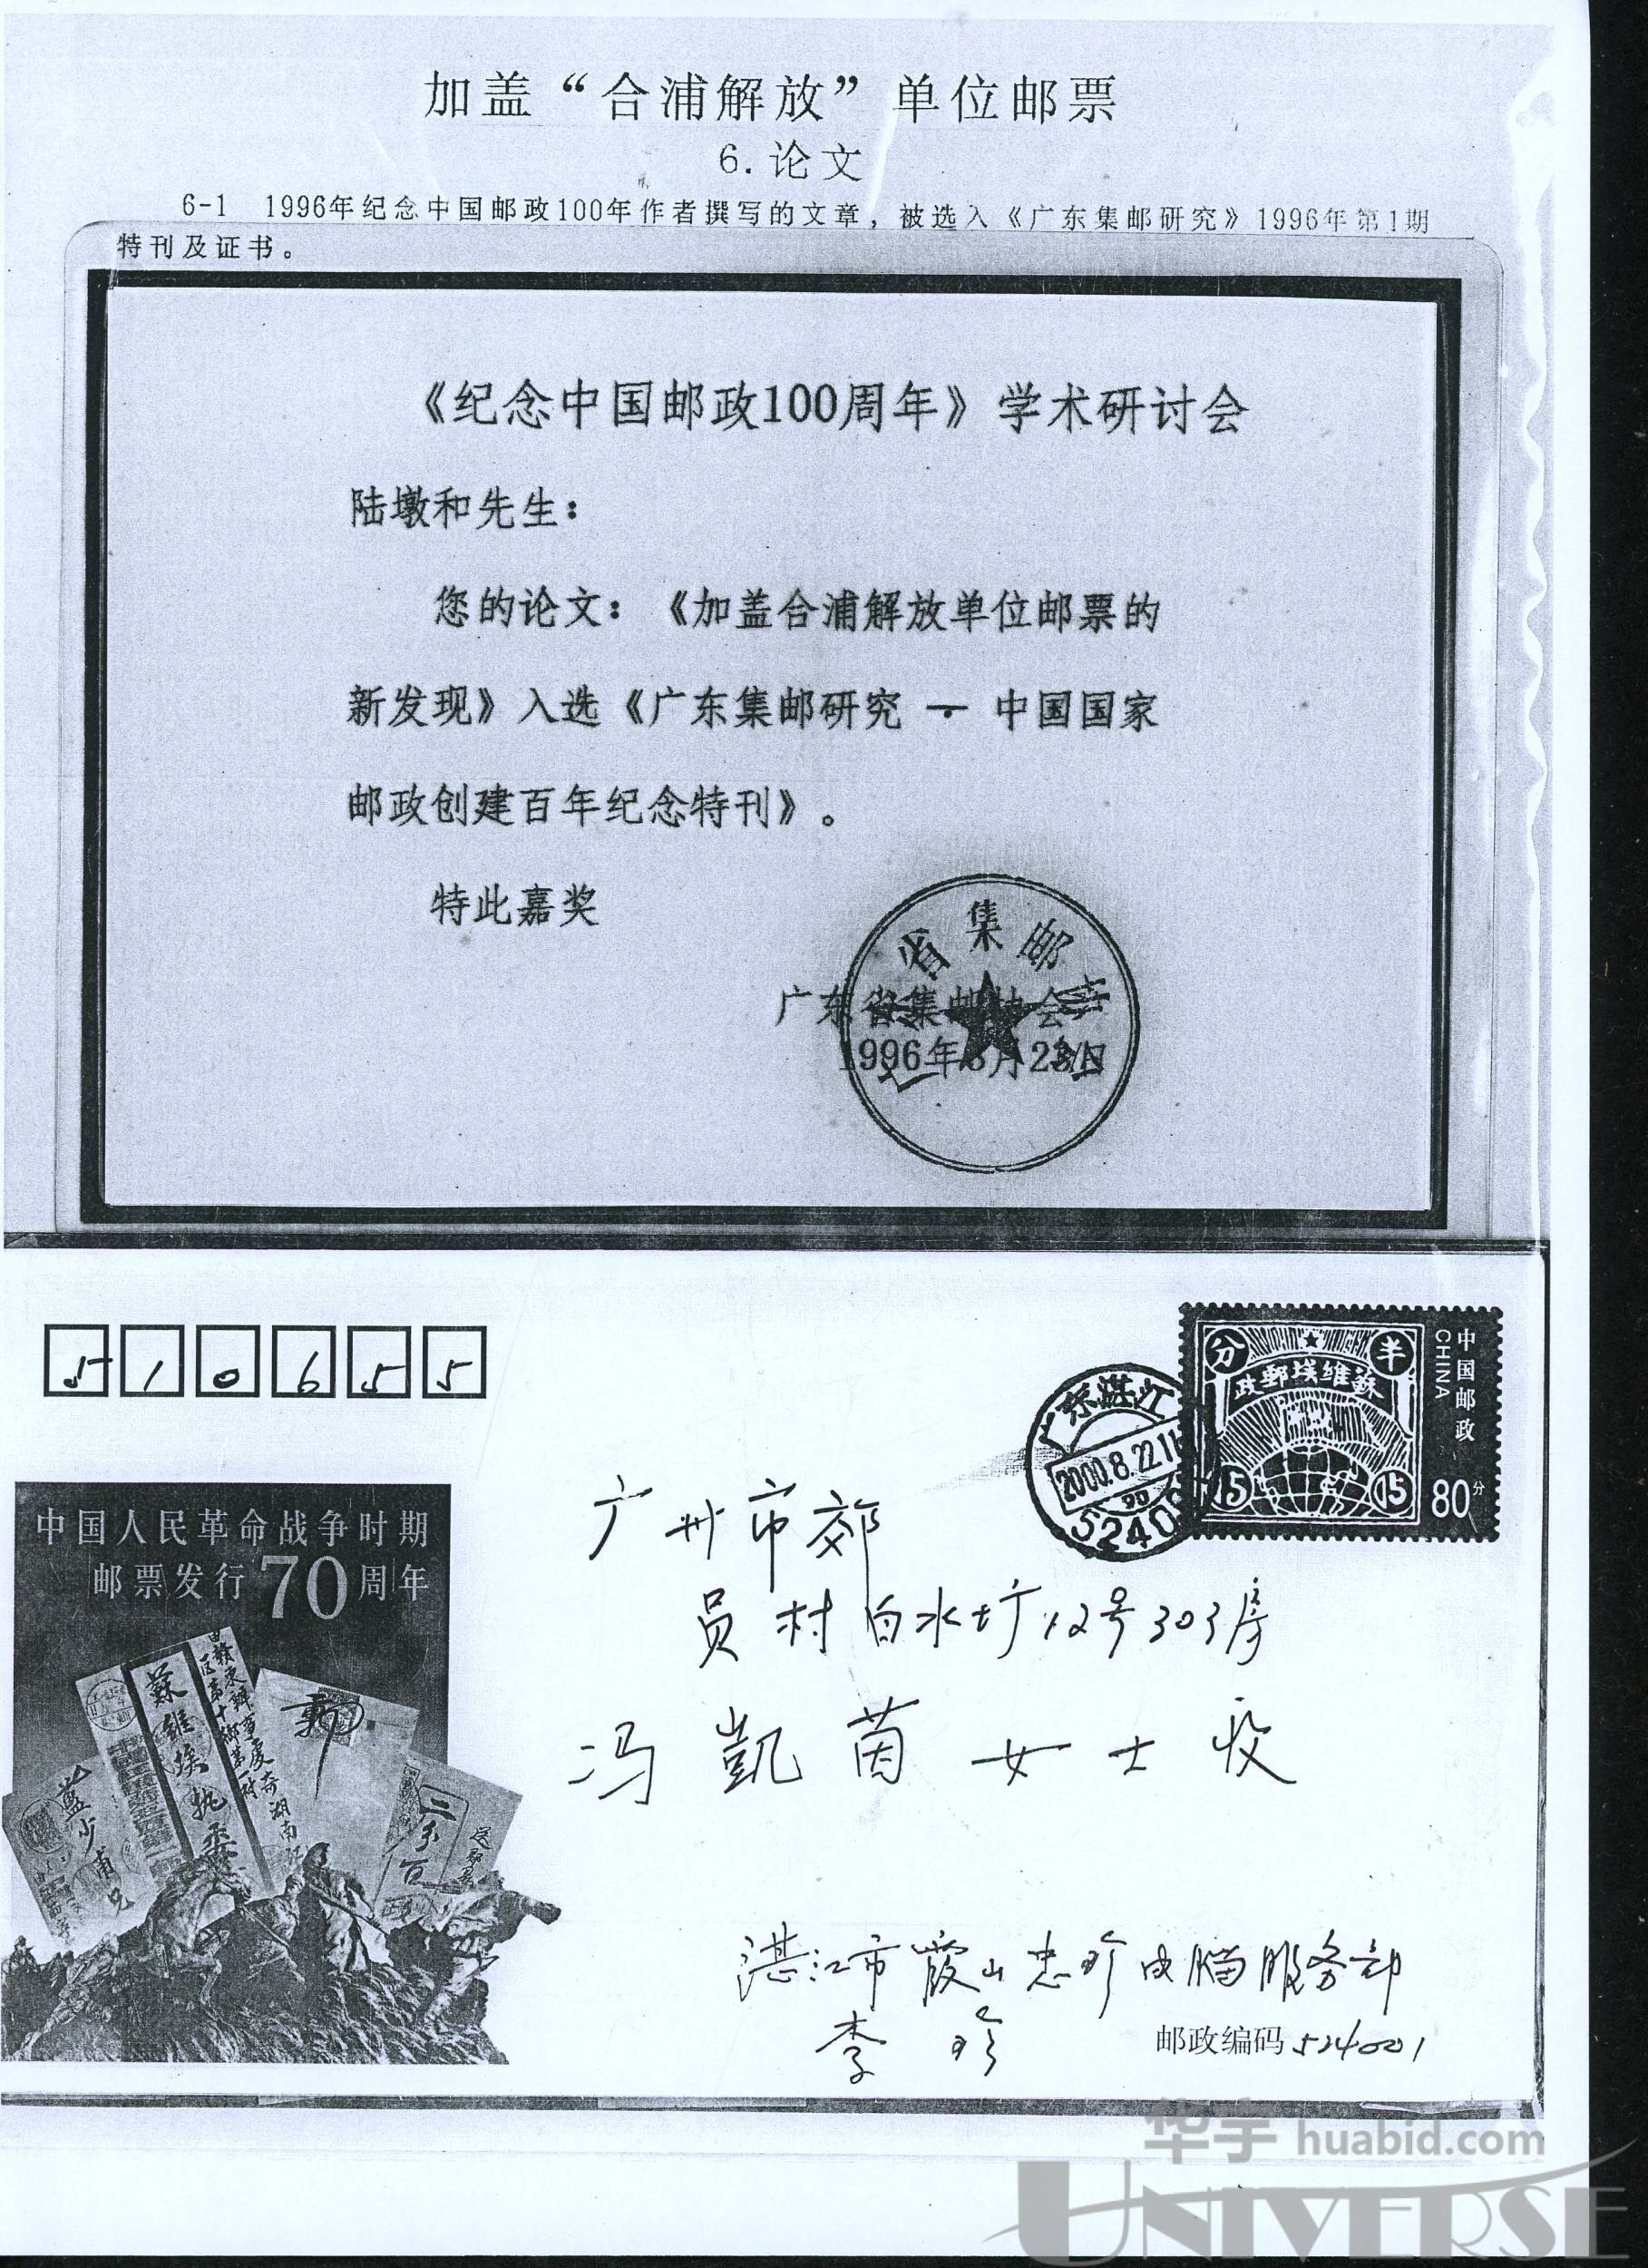 加盖“合浦解放”单位邮票
6.论文
6-1 1996年纪念中国邮政100年作者撰写的文章，被选入《广东集邮研究》1996年第1期
特刊及证书。
《纪念中国邮政100周年》学术研讨会
陆墩和先生：
您的论文：《加盖合浦解放单位邮票的
新发现》入选《广东集邮研究 — 中国国家
邮政创建百年纪念特刊》。
特此嘉奖
省集邮
广东省集邮协会
1996年8月28日
510655
中国邮政
CHINA
半
分
蘇維埃郵政
15
15
80分
广东湛江
2000.8.22.11
5240
中国人民革命战争时期
邮票发行70周年
蘇維埃執
藍少甫兄
广州市郊
员村白水圹12号303房
冯凱茵女士收
湛江市霞山忠珍电脑服务部
李珍
邮政编码 524001
华宇 huabid.com
UNIVERSE